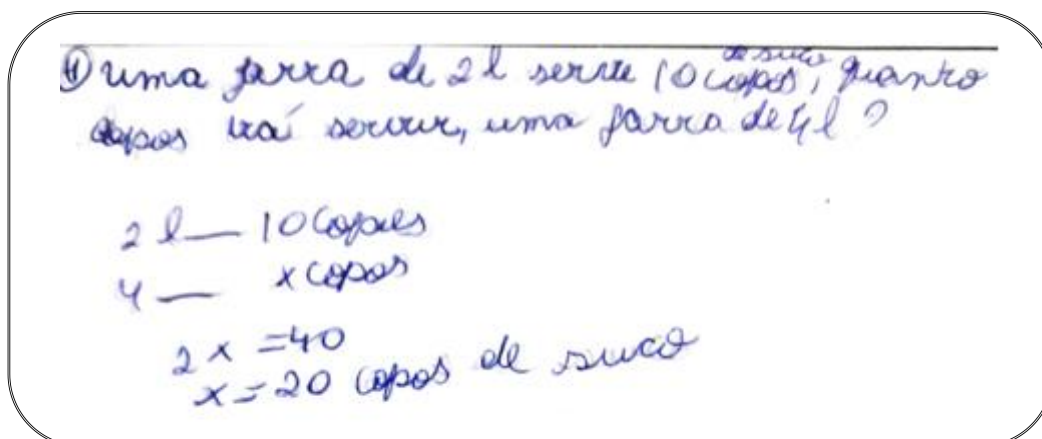 ① uma jarra de 2 l serve 10 copos de suco, quanto
copos irá servir, uma jarra de 4 l ?
2 l — 10 copos
4 — x copos
2x = 40
x = 20 copos de suco